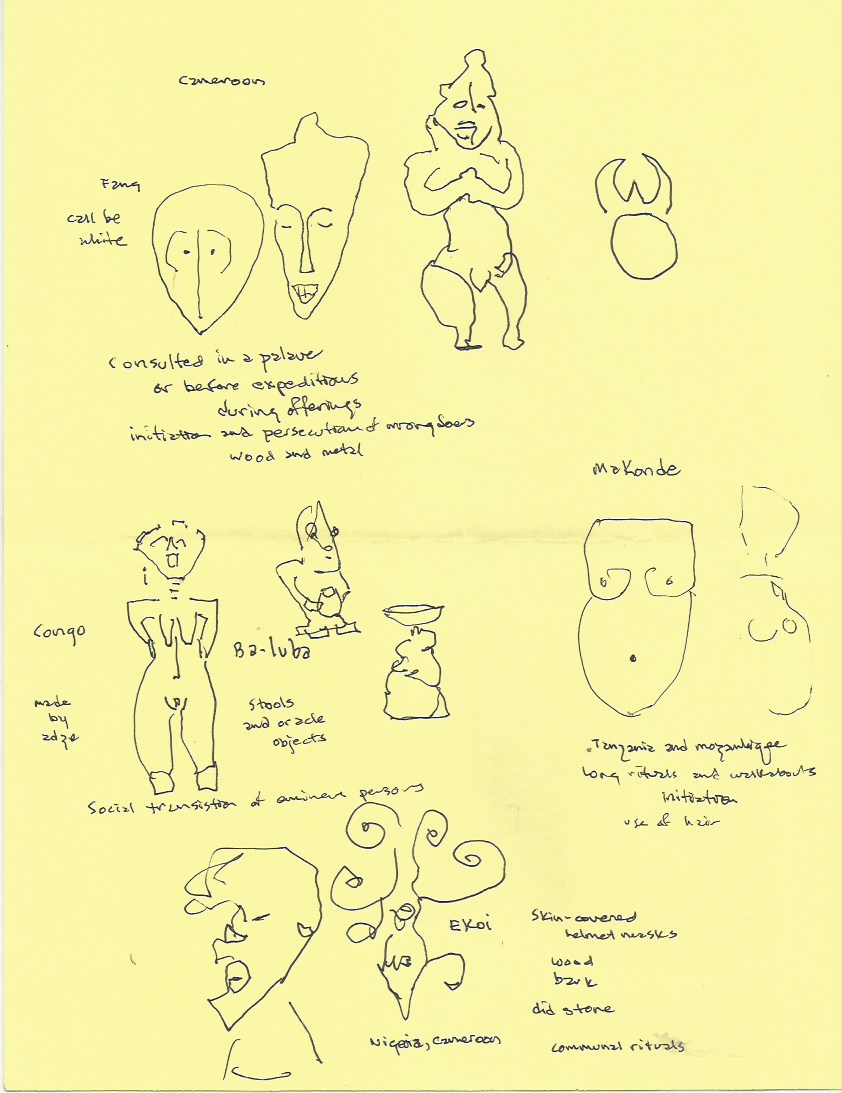 Cameroon
Fang
can be
white
Consulted in a palaver
or before expeditions
during offerings
initiation and persecution of wrongdoers
wood and metal
Makonde
Congo
made
by
adze
Ba-luba
Stools
and oracle
objects
Social transistion of eminent persons
Tanzania and mozambique
long rituals and walkabouts
initiation
use of hair
EKoi
Skin-covered
helmet masks
wood
bark
did stone
Nigeria, Cameroon
communal rituals